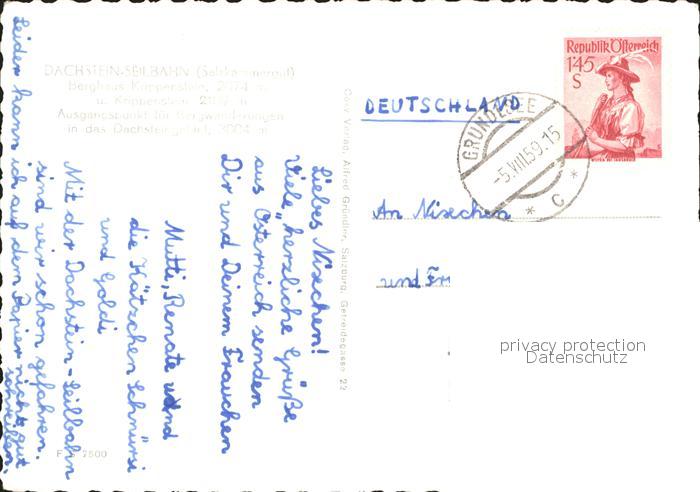 DACHSTEIN-SEILBAHN (Salzkammergut)
Berghaus Krippenstein, 2074 m
u. Krippenstein, m
Ausgangspunkt für Bergwanderungen
in das Dachsteingebiet, 3004 m
Republik Österreich
1'45
S
DEUTSCHLAND
GRUNDLSEE
-5.VIII.59.15
* C *
An Nixchen
und Fr
Liebes Nixchen!
Viele, herzliche Grüße
aus Österreich senden
Dir und Deinem Frauchen
Mutti, Renate und
die Kätzchen Schnursi
und Goldi
Mit der Dachstein-Seilbahn
sind wir schon gefahren.
Leider kann ich auf dem Papier nicht gut
schreiben.
Cosy Verlag, Alfred Gründler, Salzburg, Getreidegasse 22
7500
privacy protection
Datenschutz